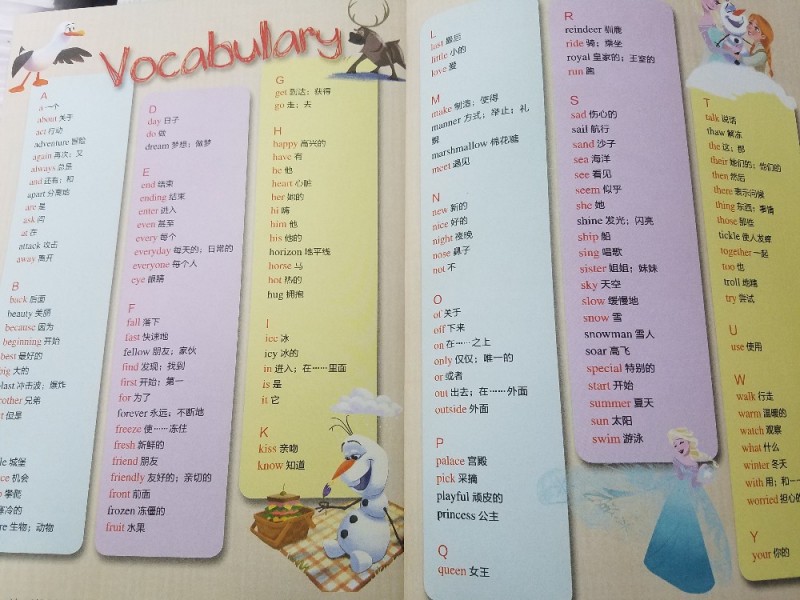 Vocabulary
A
a 一个
about 关于
act 行动
adventure 冒险
again 再次；又
always 总是
and 还有；和
apart 分离地
are 是
ask 问
at 在
attack 攻击
away 离开
B
back 后面
beauty 美丽
because 因为
beginning 开始
best 最好的
big 大的
blast 冲击波；爆炸
brother 兄弟
但是
城堡
机会
攀爬
寒冷的
生物；动物
D
day 日子
do 做
dream 梦想；做梦
E
end 结束
ending 结束
enter 进入
even 甚至
every 每个
everyday 每天的；日常的
everyone 每个人
eye 眼睛
F
fall 落下
fast 快速地
fellow 朋友；家伙
find 发现；找到
first 开始；第一
for 为了
forever 永远；不断地
freeze 使……冻住
fresh 新鲜的
friend 朋友
friendly 友好的；亲切的
front 前面
frozen 冻僵的
fruit 水果
G
get 到达；获得
go 走；去
H
happy 高兴的
have 有
he 他
heart 心脏
her 她的
hi 嗨
him 他
his 他的
horizon 地平线
horse 马
hot 热的
hug 拥抱
I
ice 冰
icy 冰的
in 进入；在……里面
is 是
it 它
K
kiss 亲吻
know 知道
L
last 最后
little 小的
love 爱
M
make 制造；使得
manner 方式；举止；礼
貌
marshmallow 棉花糖
meet 遇见
N
new 新的
nice 好的
night 夜晚
nose 鼻子
not 不
O
of 关于
off 下来
on 在……之上
only 仅仅；唯一的
or 或者
out 出去；在……外面
outside 外面
P
palace 宫殿
pick 采摘
playful 顽皮的
princess 公主
Q
queen 女王
R
reindeer 驯鹿
ride 骑；乘坐
royal 皇家的；王室的
run 跑
S
sad 伤心的
sail 航行
sand 沙子
sea 海洋
see 看见
seem 似乎
she 她
shine 发光；闪亮
ship 船
sing 唱歌
sister 姐姐；妹妹
sky 天空
slow 缓慢地
snow 雪
snowman 雪人
soar 高飞
special 特别的
start 开始
summer 夏天
sun 太阳
swim 游泳
T
talk 说话
thaw 解冻
the 这；那
their 她们的；他们的
then 然后
there 表示问候
thing 东西；事情
those 那些
tickle 使人发痒
together 一起
too 也
troll 地精
try 尝试
U
use 使用
W
walk 行走
warm 温暖的
watch 观察
what 什么
winter 冬天
with 用；和一
worried 担心的
Y
your 你的